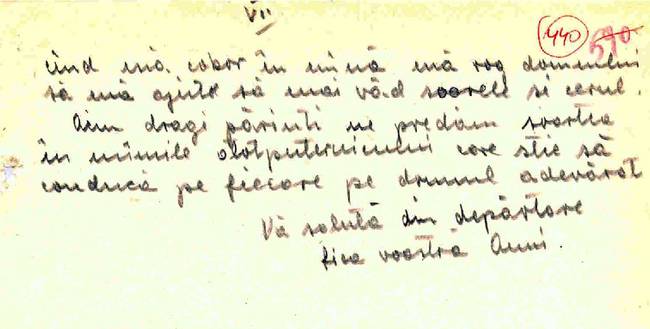 VII
440 590
cînd mă cobor în mină mă rog domnului
să mă ajute să mai văd soarele si cerul.
Aim dragi părinti ne predăm soartea
în mîmile atotputernicului care stie să
conducă pe fiecare pe drumul adevărat
Vă salută din depărtare
fica voastră Anni.